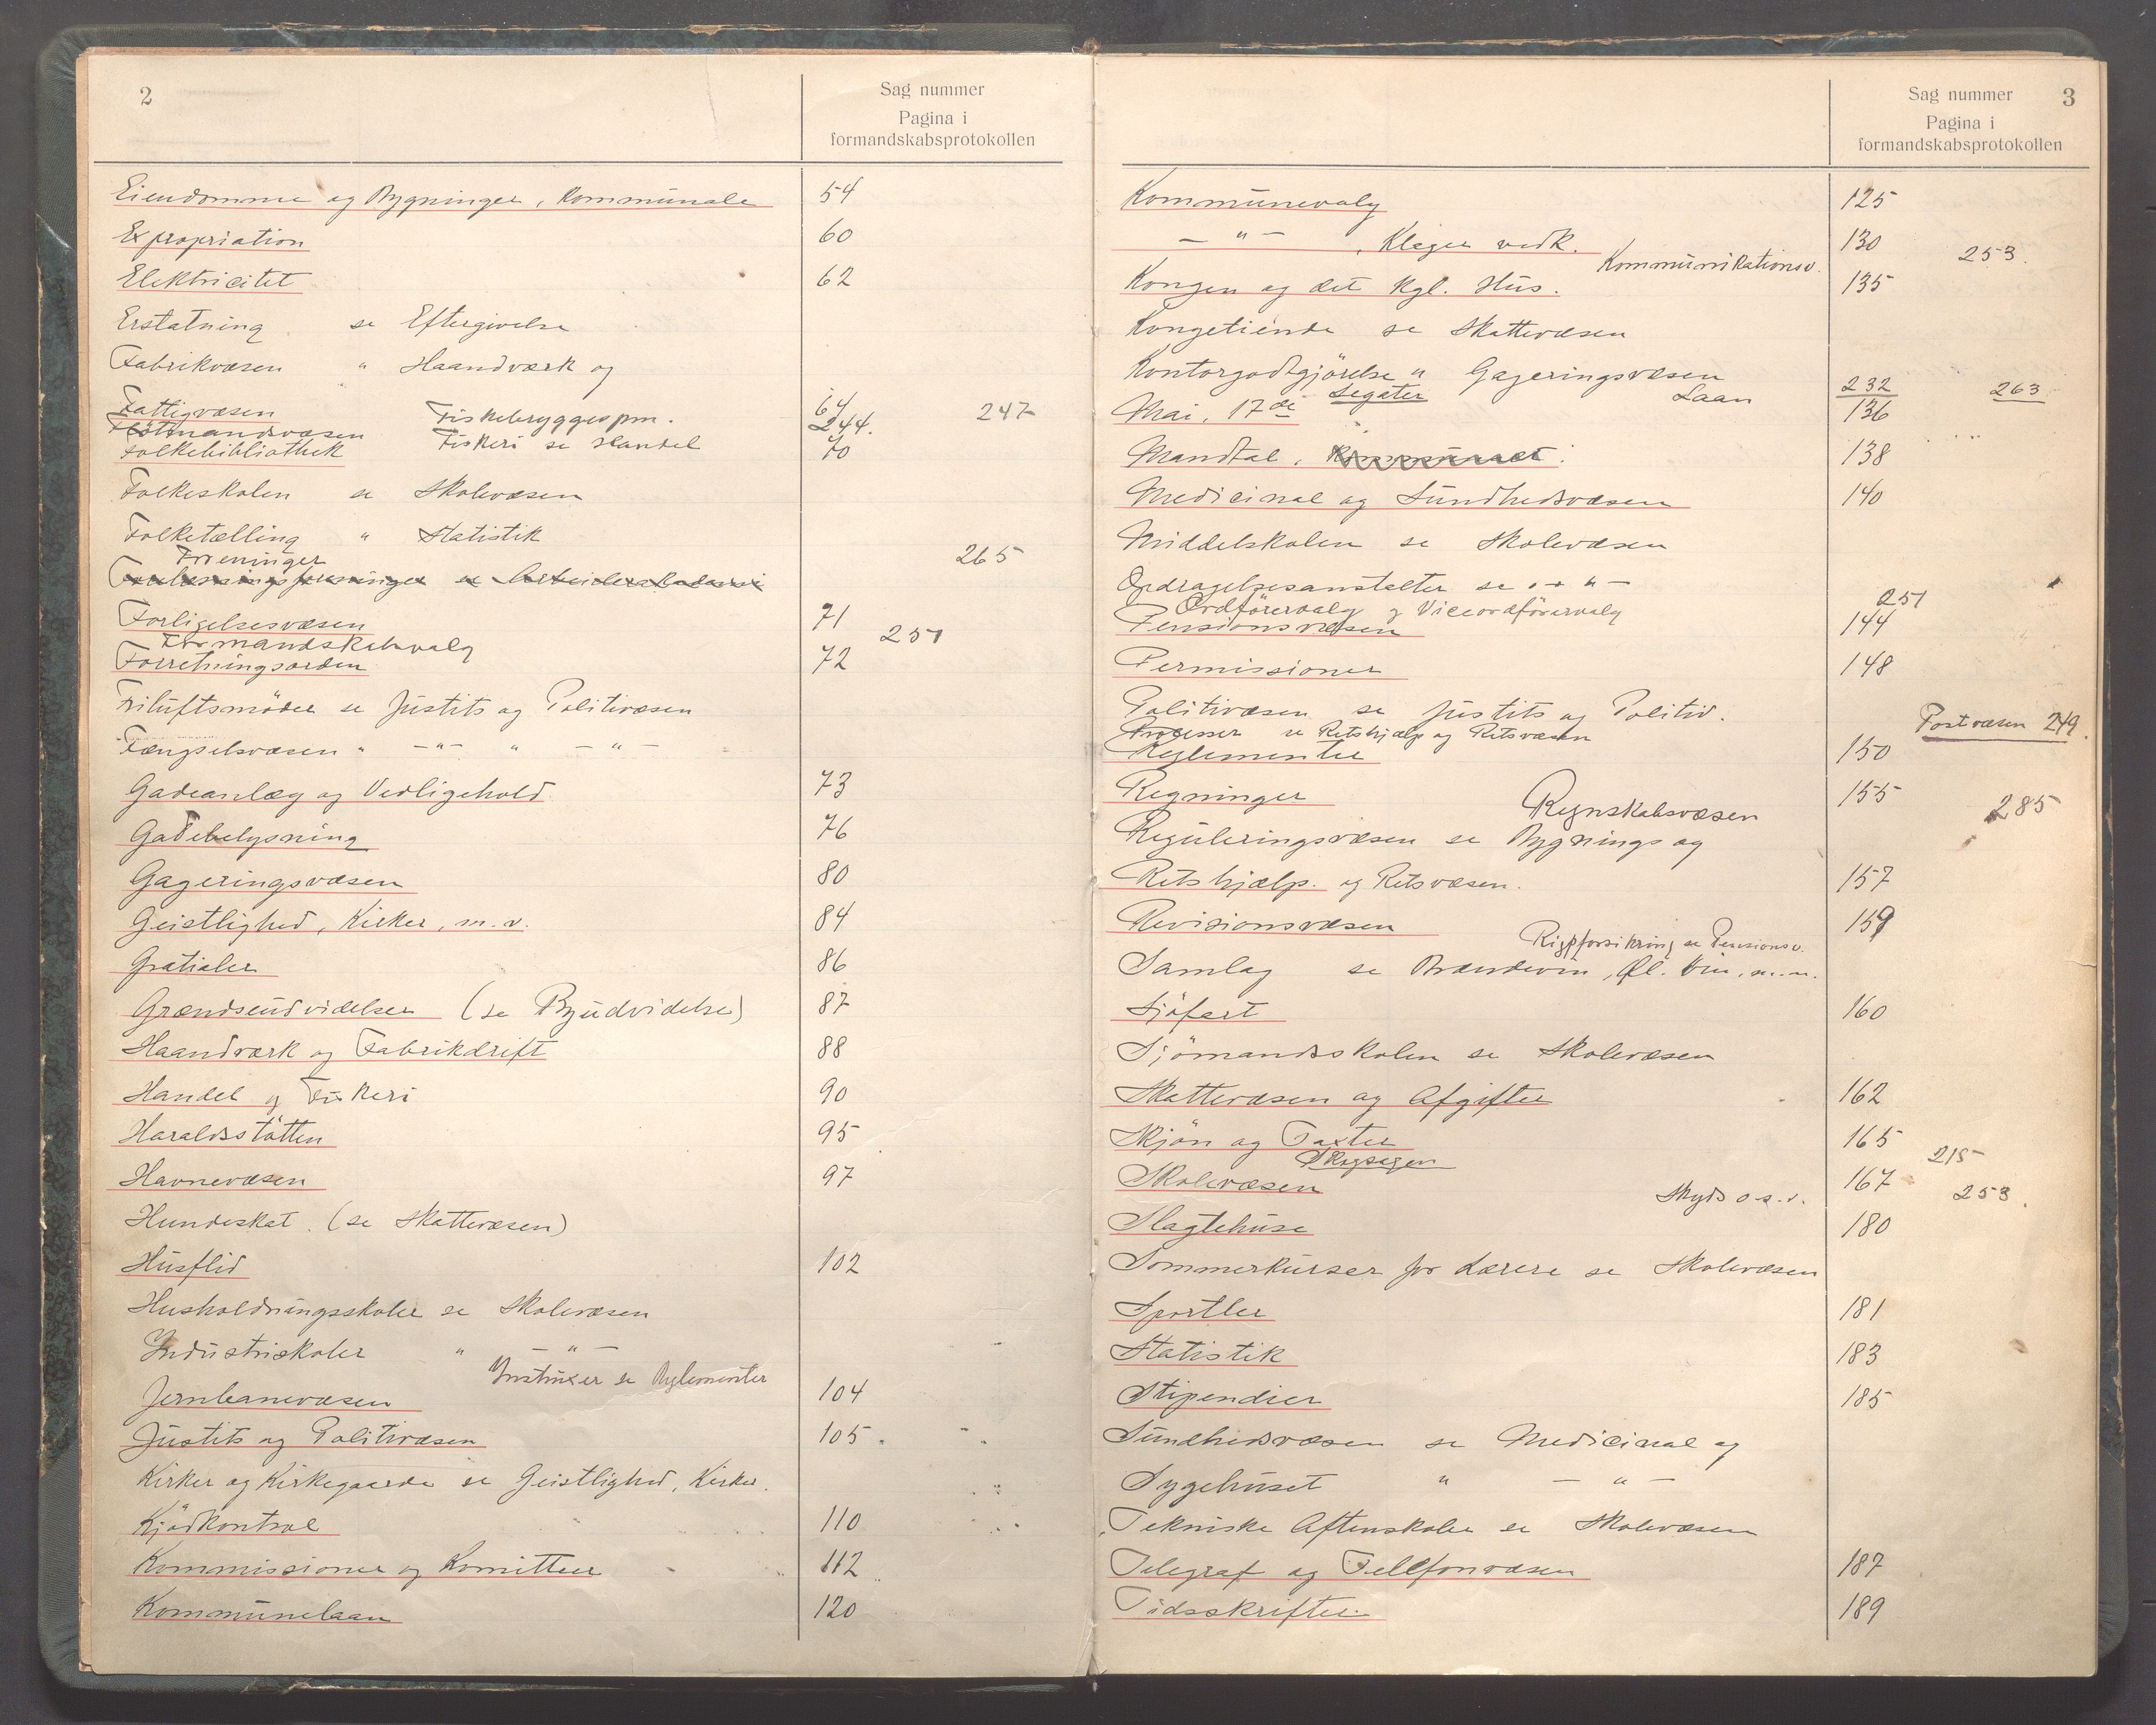 2
Sag nummer
Pagina i
formandskabsprotokollen
Eiendomme og Bygninger, Kommunale 54
Expropriation 60
Elektricitet 62
Erstatning se Eftergivelse
Fabrikvæsen " Haandværk og
Fattigvæsen Fiskebryggespm. 64 247
Flötmandsvæsen Fiskeri se Handel 244.
Folkebibliothek 70
Folkeskolen se Skolevæsen
Folketælling " Statistik
Foreninger 265
Forligelsesvæsen 71
Formandskabsvalg 251
Forretningsorden 72
Friluftsmöder se Justits og Politivæsen
Fængselsvæsen " -"- " -"-
Gadeanlæg og Vedligehold 73
Gadebelysning 76
Gageringsvæsen 80
Geistlighed, Kirker, m.v. 84
Gratialer 86
Grændseudvidelser (se Byudvidelse) 87
Haandværk og Fabrikdrift 88
Handel og Fiskeri 90
Haraldsstötten 95
Havnevæsen 97
Hundeskat. (se Skattevæsen)
Husflid 102
Husholdningsskoler se Skolevæsen
Industriskoler " -"-
Instruxer se Reglementer
Jernbanevæsen 104
Justits og Politivæsen 105
Kirker og Kirkegaarde se Geistlighed, Kirker.
Kjödkontrol 110
Kommissioner og Komiteer 112
Kommunelaan 120
3
Sag nummer
Pagina i
formandskabsprotokollen
Kommunevalg 125
-"- , Klager vedk. 130
Kommunikationsv. 253.
Kongen og det Kgl. Hus. 135
Kongetiende se Skattevæsen
Kontorgodtgjörelse " Gageringsvæsen
Legater Laan 232 263
Mai, 17de 136
Mandtal, 138
Medicinal og Sundhedsvæsen 140
Middelskolen se Skolevæsen
Opdragelsesanstalter se -"-
Ordförervalg og Viceordförervalg 251
Pensionsvæsen 144
Permissioner 148
Politivæsen se Justits og Politiv.
Postvæsen 249.
Processer se Retshjælp og Retsvæsen
Reglementer 150
Regninger 155
Regnskabsvæsen 285
Reguleringsvæsen se Bygnings og
Retshjælp. og Retsvæsen. 157
Revisionsvæsen 159
Rigsforsikring se Pensionsv.
Samlag se Brændevin, Øl. Vin, m.m.
Sjöfart 160
Sjömandsskolen se Skolevæsen
Skattevæsen og Afgifter 162
Skjön og Taxter 165
Skogsagen 215
Skolevæsen 167
Skyds o.s.v. 253.
Slagtehuse 180
Sommerkurser for Lærere se Skolevæsen
Sportler 181
Statistik 183
Stipendier 185
Sundhedsvæsen se Medicinal og
Sygehuset " -"-
Tekniske Aftenskoler se Skolevæsen
Telegraf og Telefonvæsen 187
Tidsskrifter 189